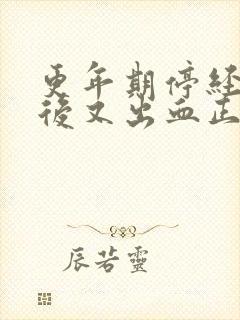 更年期停経
後又出血正
辰若靈